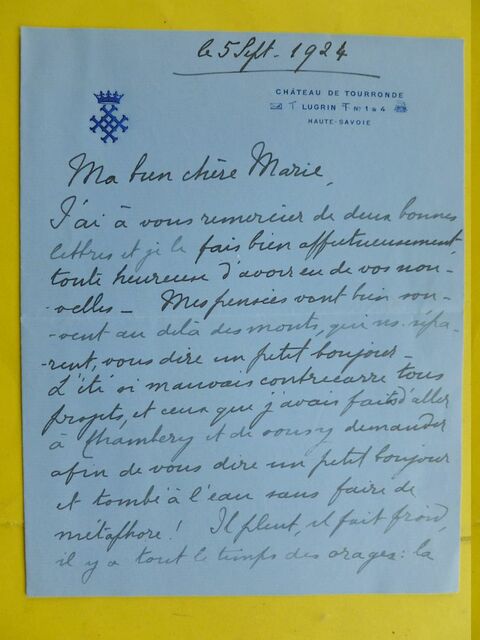 le 5 Sept. 1924
CHÂTEAU DE TOURRONDE
T LUGRIN T Nº 1 à 4
HAUTE-SAVOIE
Ma bien chère Marie,
J'ai à vous remercier de deux bonnes
lettres et je le fais bien affectueusement,
toute heureuse d'avoir eu de vos nou-
-velles - Mes pensées vont bien sou-
-vent au delà des monts, qui ns. sépa-
-rent, vous dire un petit bonjour -
L'été si mauvais contrecarre tous
projets, et ceux que j'avais faits d'aller
à Chambery et de vous y demander
afin de vous dire un petit bonjour
et tombé à l'eau sans faire de
métaphore ! Il pleut, il fait froid,
il y a tout le temps des orages : la